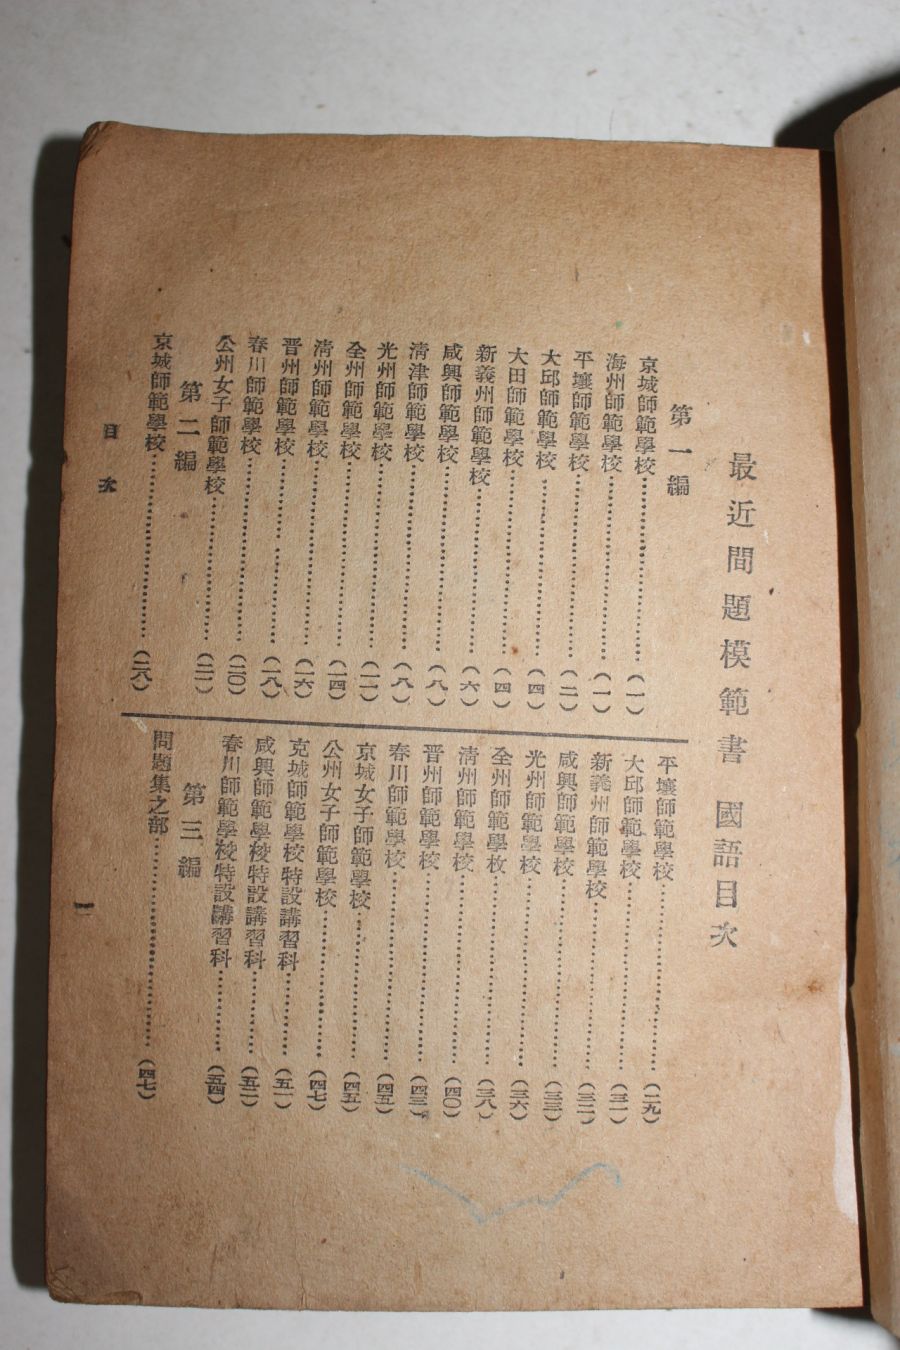 最近問題模範書 國語目次
第一編
京城師範學校…………(一)
海州師範學校…………(一)
平壤師範學校…………(二)
大邱師範學校…………(四)
大田師範學校…………(四)
新義州師範學校…………(六)
咸興師範學校…………(八)
淸津師範學校…………(八)
光州師範學校…………(一二)
全州師範學校…………(一四)
淸州師範學校…………(一六)
晋州師範學校…………(一八)
春川師範學校…………(二〇)
公州女子師範學校…………(二二)
第二編
京城師範學校…………(二八)
平壤師範學校…………(二九)
大邱師範學校…………(三一)
新義州師範學校…………(三二)
咸興師範學校…………(三三)
光州師範學校…………(三六)
全州師範學枚…………(三八)
淸州師範學校…………(四〇)
晋州師範學校…………(四三)
春川師範學校…………(四五)
京城女子師範學校…………(四五)
公州女子師範學校…………(四七)
克城師範學校特設講習科…………(五一)
咸興師範學校特設講習科…………(五二)
春川師範學校特設講習科…………(五四)
第三編
問題集之部…………(四七)
目次
一